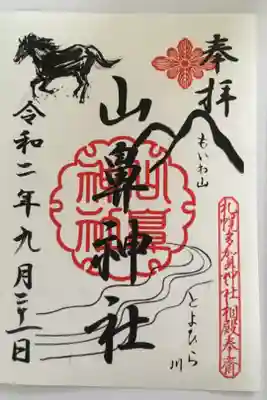 奉拝
もいわ山
札幌多賀神社相殿奉斎
山鼻神社
山鼻神社
とよひら
川
令和二年九月二十一日